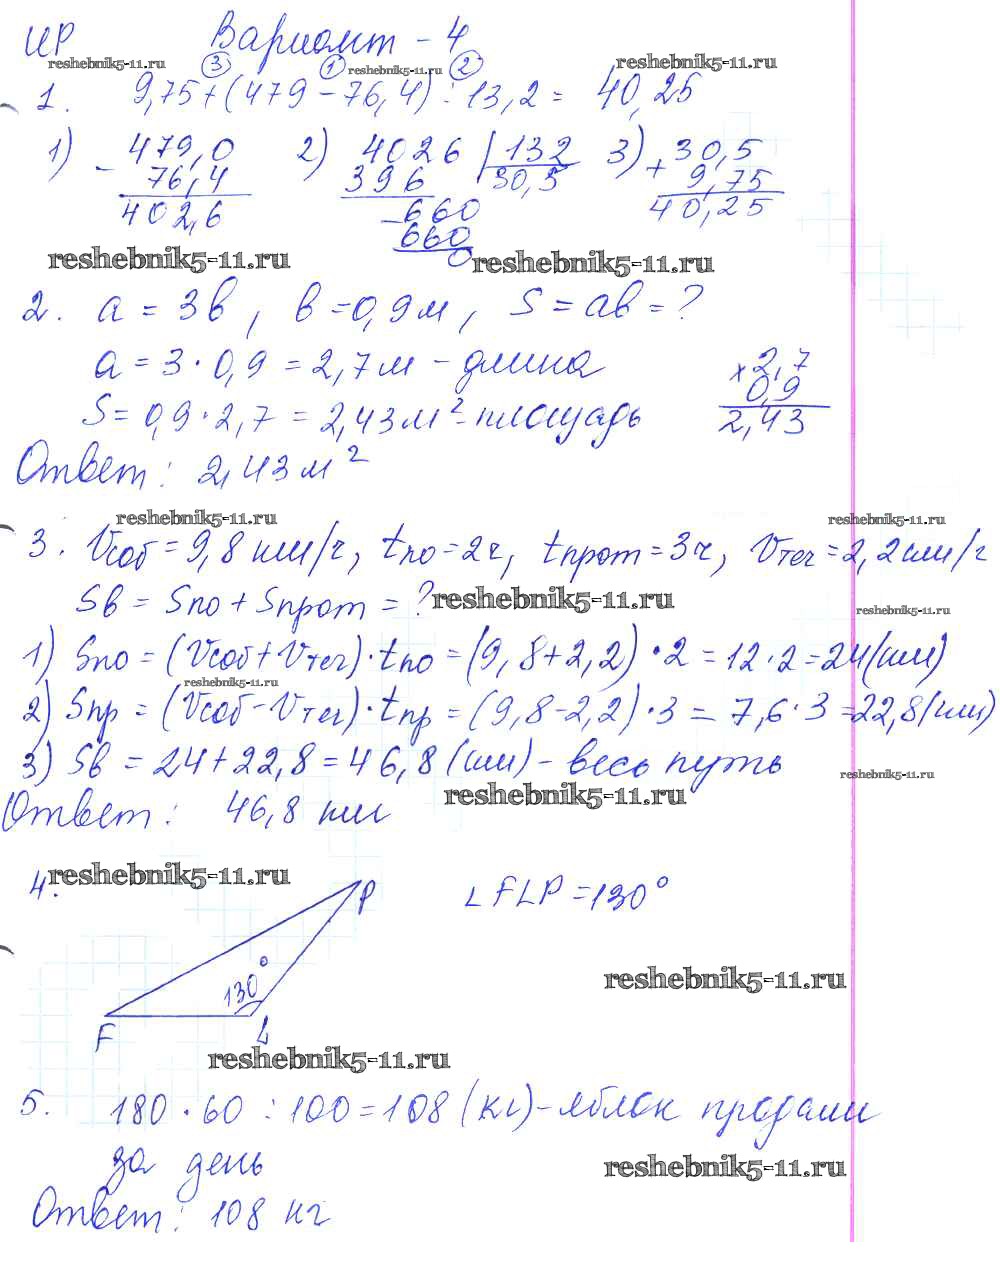 ИР Вариант - 4
reshebnik5-11.ru reshebnik5-11.ru reshebnik5-11.ru
③ ① ②
1. 9,75+(479-76,4):13,2= 40,25
1) 479,0 2) 4026 |132 3) 30,5
- 76,4 396 30,5 + 9,75
402,6 -660 40,25
660
0
reshebnik5-11.ru reshebnik5-11.ru
2. a = 3b, b=0,9м, S=ab=?
a = 3·0,9 = 2,7м - длина ×2,7
0,9
S= 0,9·2,7 = 2,43м²-площадь 2,43
Ответ: 2,43м²
reshebnik5-11.ru reshebnik5-11.ru
3. Vсоб=9,8км/ч, tпо=2ч, tпрот=3ч, Vтеч=2,2км/ч
Sв = Sпо+Sпрот=? reshebnik5-11.ru reshebnik5-11.ru
1) Sпо=(Vсоб+Vтеч)·tпо=(9,8+2,2)·2=12·2=24(км)
reshebnik5-11.ru
2) Sпр=(Vсоб-Vтеч)·tпр=(9,8-2,2)·3=7,6·3=22,8(км)
3) Sв=24+22,8=46,8(км)-весь путь
reshebnik5-11.ru
Ответ: 46,8 км reshebnik5-11.ru
4. reshebnik5-11.ru
P ∠FLP=130°
130°
reshebnik5-11.ru
F L
reshebnik5-11.ru
5. 180·60:100=108(кг)-яблок продали
за день reshebnik5-11.ru
Ответ: 108 кг